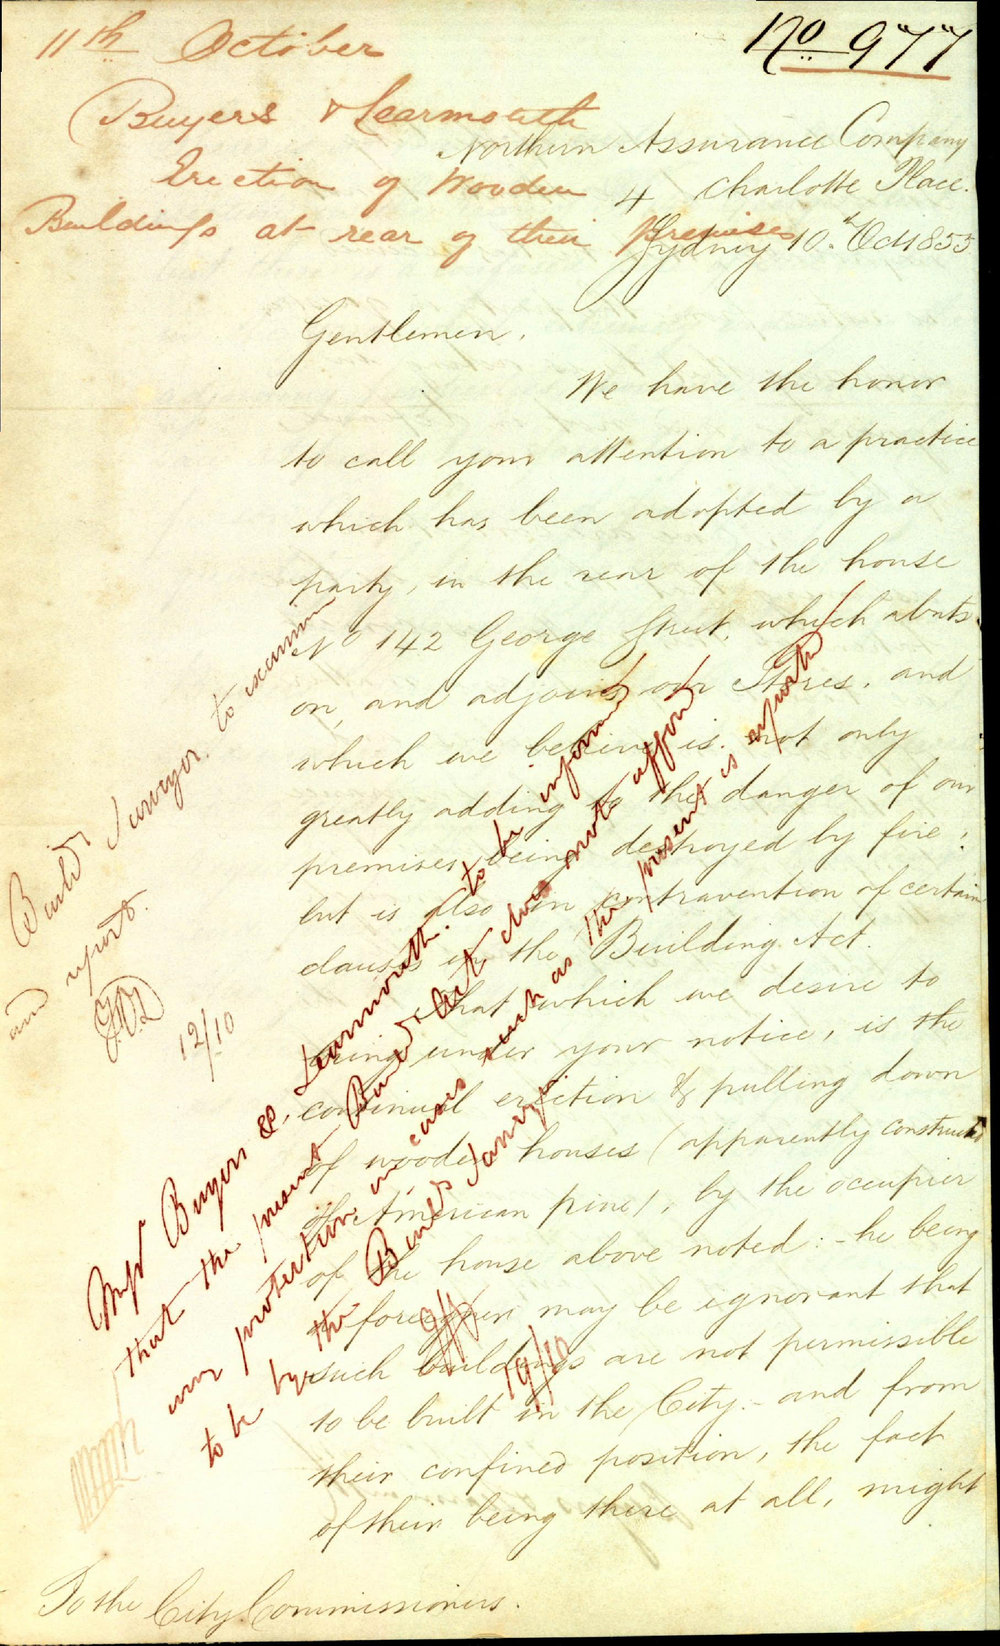 No 977
11th October
Buyers & Learmonth
Erection of Wooden
Buildings at rear of their Premises
Northern Assurance Company
4 Charlotte Place.
Sydney 10th Oct 1855
Gentlemen.
We have the honor
to call your attention to a practice
which has been adopted by a
party, in the rear of the house
No 142 George Street, which abuts
on, and adjoins our Stores, and
which we believe is not only
greatly adding to the danger of our
premises being destroyed by fire;
but is also in contravention of certain
clauses in the Building Act.
That which we desire to
bring under your notice, is the
continual erection & pulling down
of wooden houses (apparently constructed
of American pine), by the occupier
of the house above noted:- he being
a foreigner may be ignorant that
such buildings are not permissible
to be built in the City - and from
their confined position, the fact
of their being there at all, might
To the City Commissioners.
Build Surveyor. to examine
and report.
12/10
Messrs Buyers & Learmonth. to be informed
that the present Build Act does not afford
any protection in cases such as the present is reported
to be by the Build Surveyor
19/10